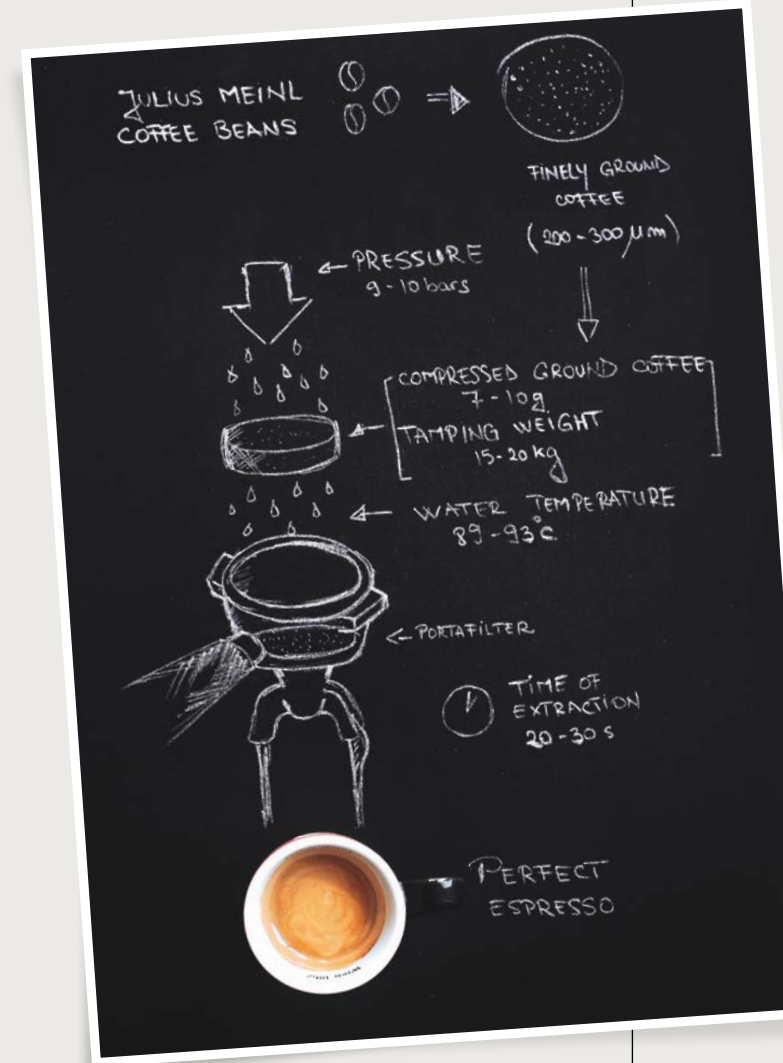 JULIUS MEINL
COFFEE BEANS
FINELY GROUND
COFFEE
(200-300 µm)
PRESSURE
9-10 bars
COMPRESSED GROUND COFFEE
7-10g
TAMPING WEIGHT
15-20 kg
WATER TEMPERATURE
89-93°C
PORTAFILTER
TIME OF
EXTRACTION
20-30 s
PERFECT
ESPRESSO